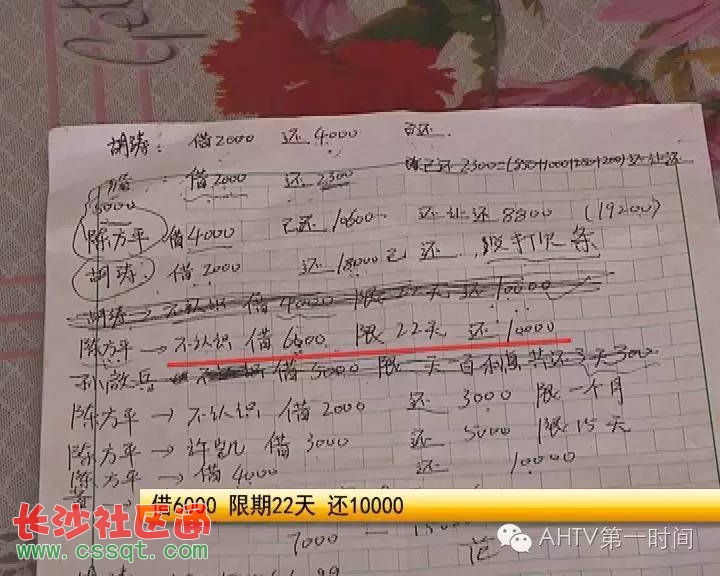 胡涛： 借2000 还4000 已还
借2000 还2300
5000
陈方平 借4000 已还10600 还让还8800 (19200)
胡涛 借2000 还18000已还 没打欠条
胡涛 不认识 借4000 限22天 还10000
陈方平→不认识 借6000 限22天 还10000
借5000 限一天一百利息 共还3天300
陈方平→不认识 借2000 还3000 限一个月
陈方平→许凯 借3000 还5000 限15天
陈方平→借4000 还10000
借6000 限期22天 还10000
7000
长沙社区通
www.cssqt.com
AHTV第一时间